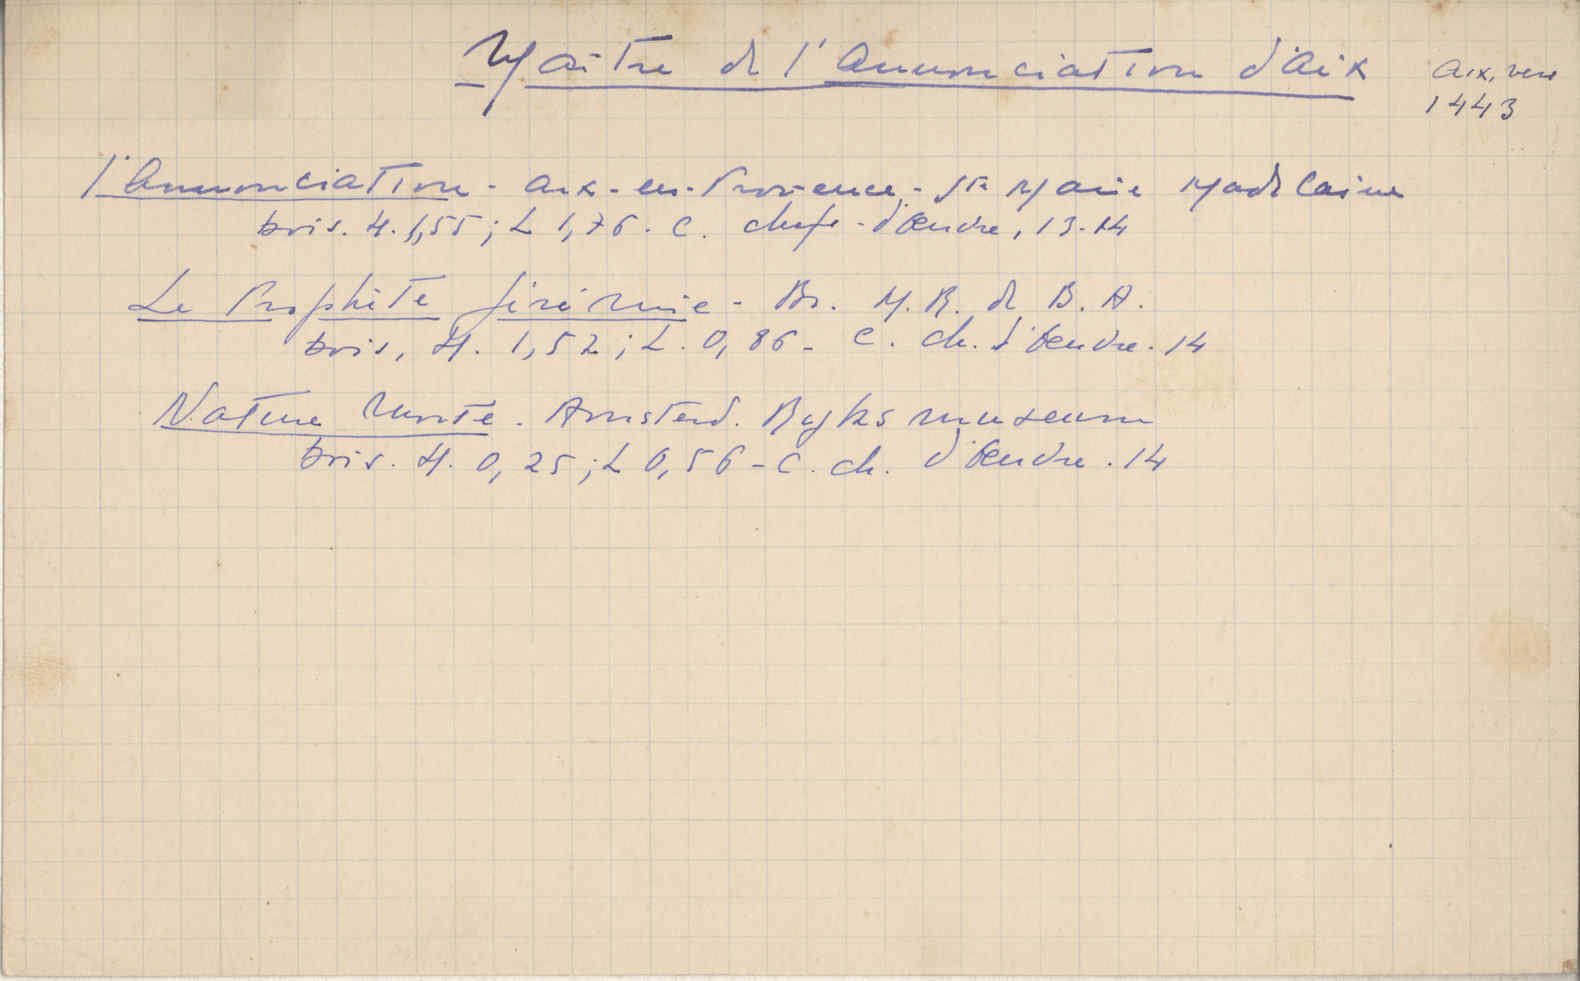 Maître de l'Annonciation d'Aix
Aix, vers
1443
l'Annonciation - Aix-en-Provence - Ste Marie Madelaine
bois. H. 1,55 ; L 1,76. C. chefs-d'œuvre, 13-14
Le Prophète Jérémie - Br. M. R. de B. A.
bois, H. 1,52 ; L. 0,86 - C. ch. d'œuvre. 14
Nature Morte. Amsterd. Ryks museum
bois. H. 0,25 ; L 0,56 - C. ch. d'œuvre. 14